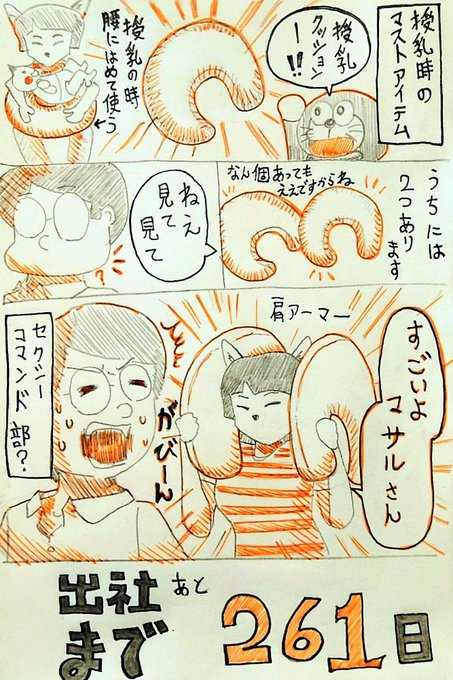 授乳時の
マストアイテム
授乳
クッション
ー!!
授乳の時
腰にはめて使う
うちには
2つあります
なん個あっても
ええですからね
ねえ
見て
見て
?
すごいよ
マサルさん
肩アーマー
がびーん
セクシー
コマンドー部?
出社
まで
あと
261日